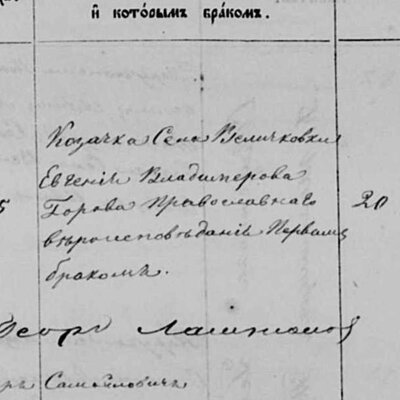 и҆ кото́рымъ бра́комъ.
Козачка Села Величковки
Евгенія Владимерова
Горова Православнаго
20
вѣроисповѣданія Первымъ
бракомъ.
Самойловичъ